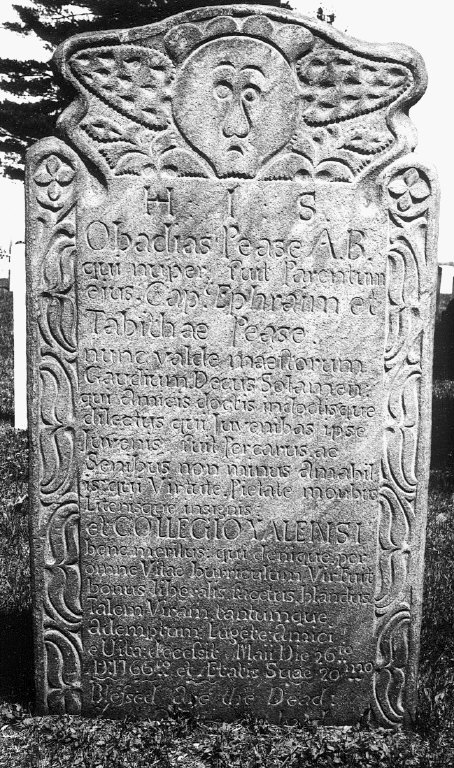 H. I S.
Obadias Pease A.B.
qui nuper fuit Parentum
ejus. Cap.t Ephraim et
Tabithae Pease.
nunc valde maestorum
Gaudium Decus Solamen:
qui Amicis doctis indoctisque
dilectus qui Juvenibus ipse
Juvenis fuit Percarus, ac
Senibus non minus Amabil
is: qui Virtute, Pietate moribus
Literisque insignis:
et COLLEGIO YALENSI
bene meritus: qui denique per
omne Vitae Curriculum Virfuit
bonus liberalis, facetus, blandus
Talem Virum, tantumque
ademptum Lugete Amici
e Vita decessit Maii Die 26.to
D. 1766.to et AEtatis Suae 20.mo
Blessed are the Dead: